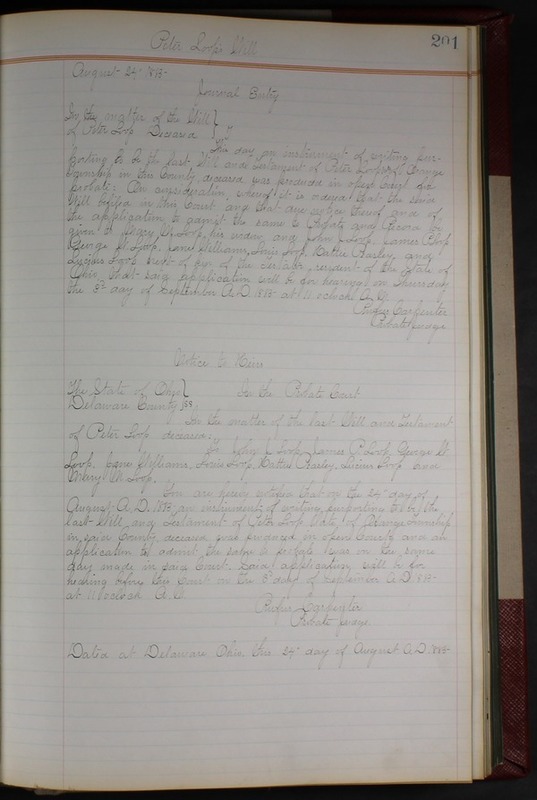 201
Peter Loop's Will
August 24" 1885
Journal Entry
In the matter of the Will }
of Peter Loop Deceased }
This day an instrument of writing pur-
porting to be the last Will and Testament of Peter Loop of Orange
Township in this County, deceased was produced in open Court for
probate: On consideration whereof it is ordered that the said
Will be filed in this Court and that due notice thereof and of
the application to admit the same to Probate and Record be
given to Mary M. Loop, his widow and John L. Loop, James P. Loop
George W. Loop, Jane Williams, Louis Loop, Hattie Haxley, and
Lucius Loop next of kin of the testator, resident of the State of
Ohio, that said application will be for hearing on Thursday
the 3d day of September A.D. 1885 at 11 o'clock A.M.
Rufus Carpenter
Probate Judge
Notice to Heirs
The State of Ohio }
Delaware County } SS
In the Probate Court
In the matter of the last Will and Testament
of Peter Loop deceased:
To John L. Loop, James P. Loop, George W.
Loop, Jane Williams, Louis Loop, Hattie Haxley, Lucius Loop and
Mary M. Loop.
You are hereby notified that on the 24" day of
August A.D. 1885, an instrument of writing purporting to be the
last Will and Testament of Peter Loop late of Orange Township
in said County deceased was produced in open Court and an
application to admit the same to probate was on the same
day made in said Court. Said application will be for
hearing before this Court on the 3d day of September A.D. 1885
at 11 o'clock A.M.
Rufus Carpenter
Probate Judge
Dated at Delaware Ohio, this 24" day of August A.D. 1885